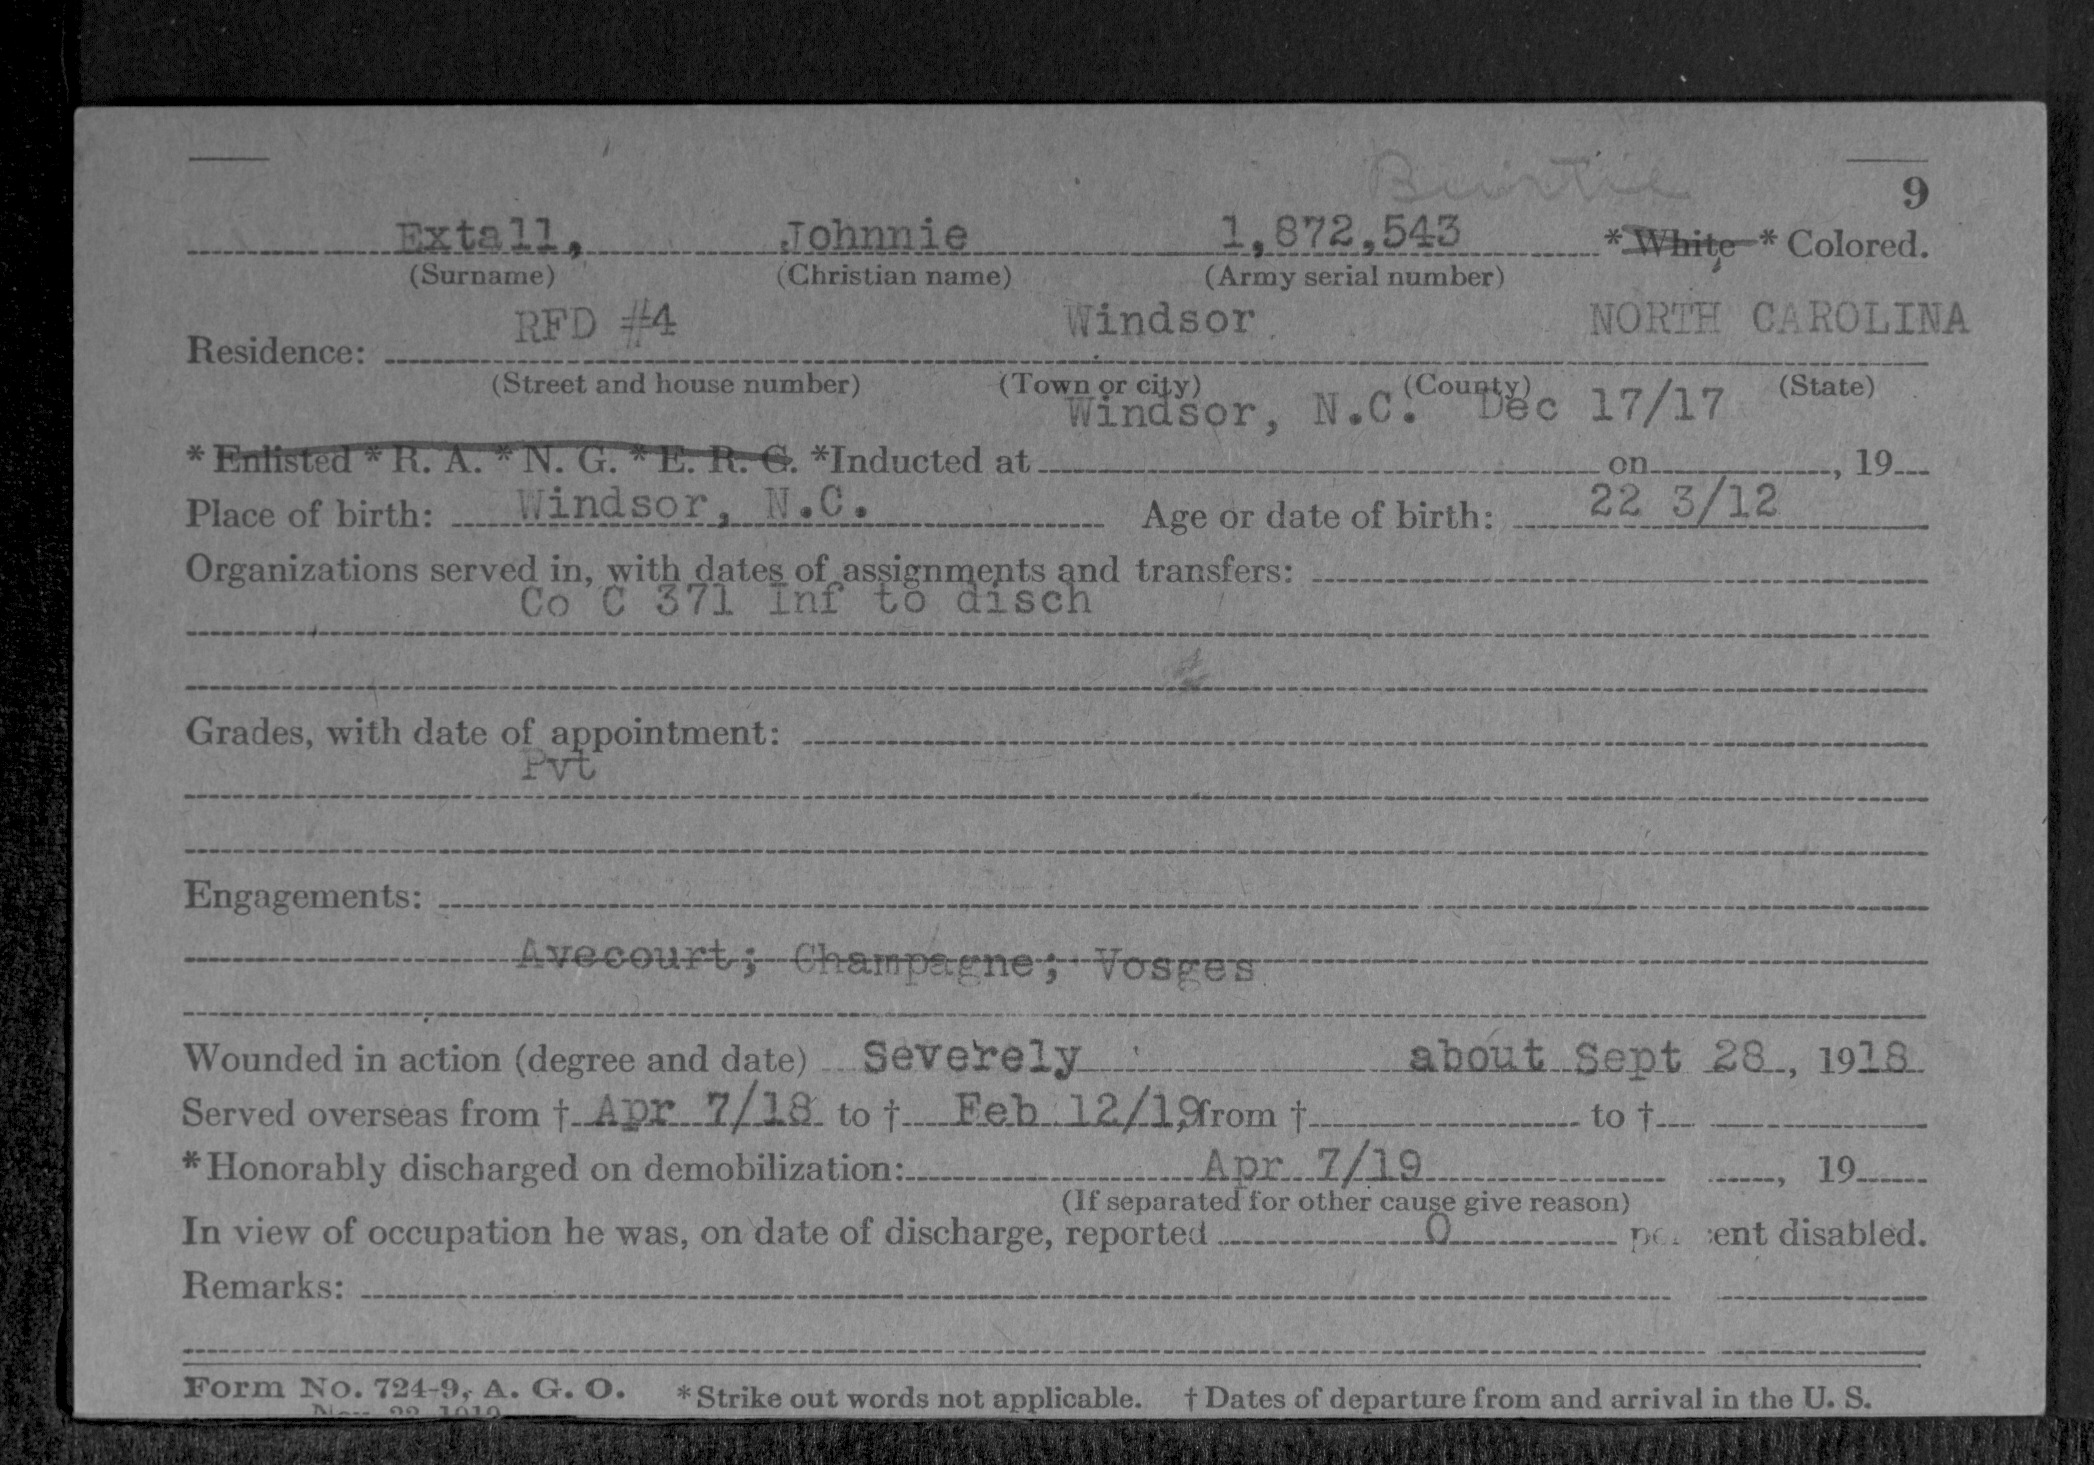 9
Extall, Johnnie 1,872,543 * White * Colored.
(Surname) (Christian name) (Army serial number)
RFD #4 Windsor NORTH CAROLINA
Residence:
(Street and house number) (Town or city) (County) (State)
Windsor, N.C. Dec 17/17
* Enlisted * R. A. * N. G. * E. R. C. *Inducted at on , 19
Place of birth: Windsor, N.C. Age or date of birth: 22 3/12
Organizations served in, with dates of assignments and transfers:
Co C 371 Inf to disch
Grades, with date of appointment:
Pvt
Engagements:
Avecourt; Champagne; Vosges
Wounded in action (degree and date) Severely about Sept 28, 1918
Served overseas from † Apr 7/18 to † Feb 12/19, from † to †
* Honorably discharged on demobilization: Apr 7/19 , 19
(If separated for other cause give reason)
In view of occupation he was, on date of discharge, reported 0 per cent disabled.
Remarks:
Form No. 724-9, A. G. O. * Strike out words not applicable. † Dates of departure from and arrival in the U. S.
Nov. 22, 1919